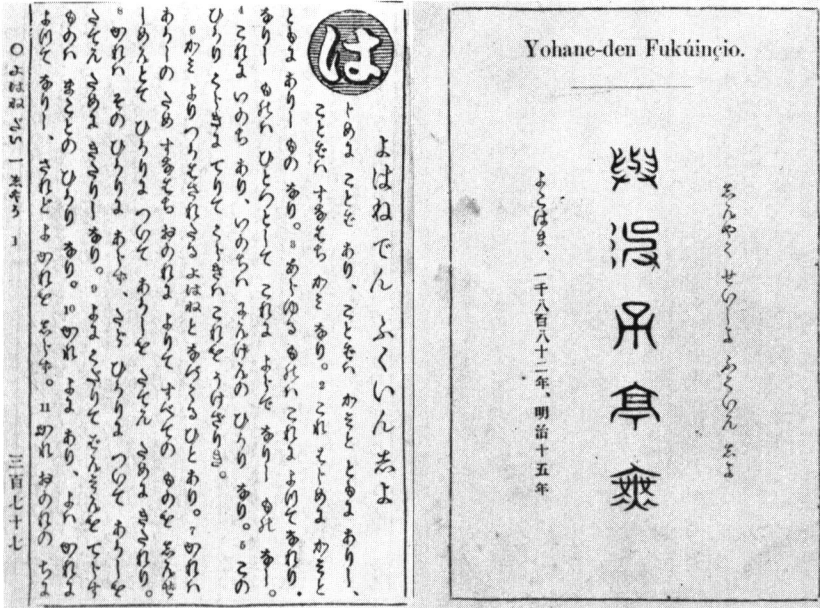 Yohane-den Fukúinçio.
志んやく せいしよ ふくいん 志よ
よこはま、一千八百八十二年、明治十五年
よはねでん ふくいん 志よ
は
じめに ことば あり、ことばハ かみと ともに ありし、
ことばハ すなはち かミ なり。2 これ はじめに かみと
ともに ありし もの なり。3 あらゆる ものハ これに よりて なれり、
なりし ものハ ひとつとして これに よらで なりし ものハ なし。
4 これに いのち あり、いのちハ にんげんの ひかり なり。5 この
ひかり くらきに てりて くらきハ これを うけざりき。
6 かミ より つかはされたる よはねと なづくる ひと あり。7 かれハ
あかしの ため すなはち おのれに よりて すべての ものを 志んぜ
しめんとて ひかりに ついて あかしを たてん ために きたれり。
8 かれハ その ひかりに あらず、たゞ ひかりに ついて あかしを
たてん ために きたりし なり。9 よに くだりて を てらす
ものハ まことの ひかり なり。10 かれ よに あり、よハ かれに
よりて なりし、されど よ かれを 志らず。11 かれ おのれの
〇よはね でん 一 志やう 1 三百七十七